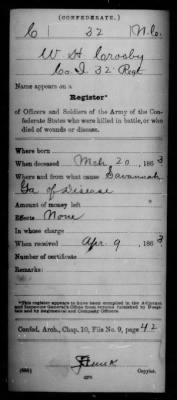 (CONFEDERATE.)
C 32 N.C.
W H Crosby
Co. I. 32 Regt
Name appears on a
Register*
of Officers and Soldiers of the Army of the Con-
federate States who were killed in battle, or who
died of wounds or disease.
Where born
When deceased Mch 20, 1863
Where and from what cause Savannah
Ga of Disease
Amount of money left
Effects None
In whose charge
When received Apr. 9, 1863
Number of certificate
Remarks:
*This register appears to have been compiled in the Adjutant
and Inspector General's Office from returns furnished by Hosp-
itals and by Regimental and Company Officers.
Confed. Arch., Chap. 10, File No. 9, page 42
Copyist.